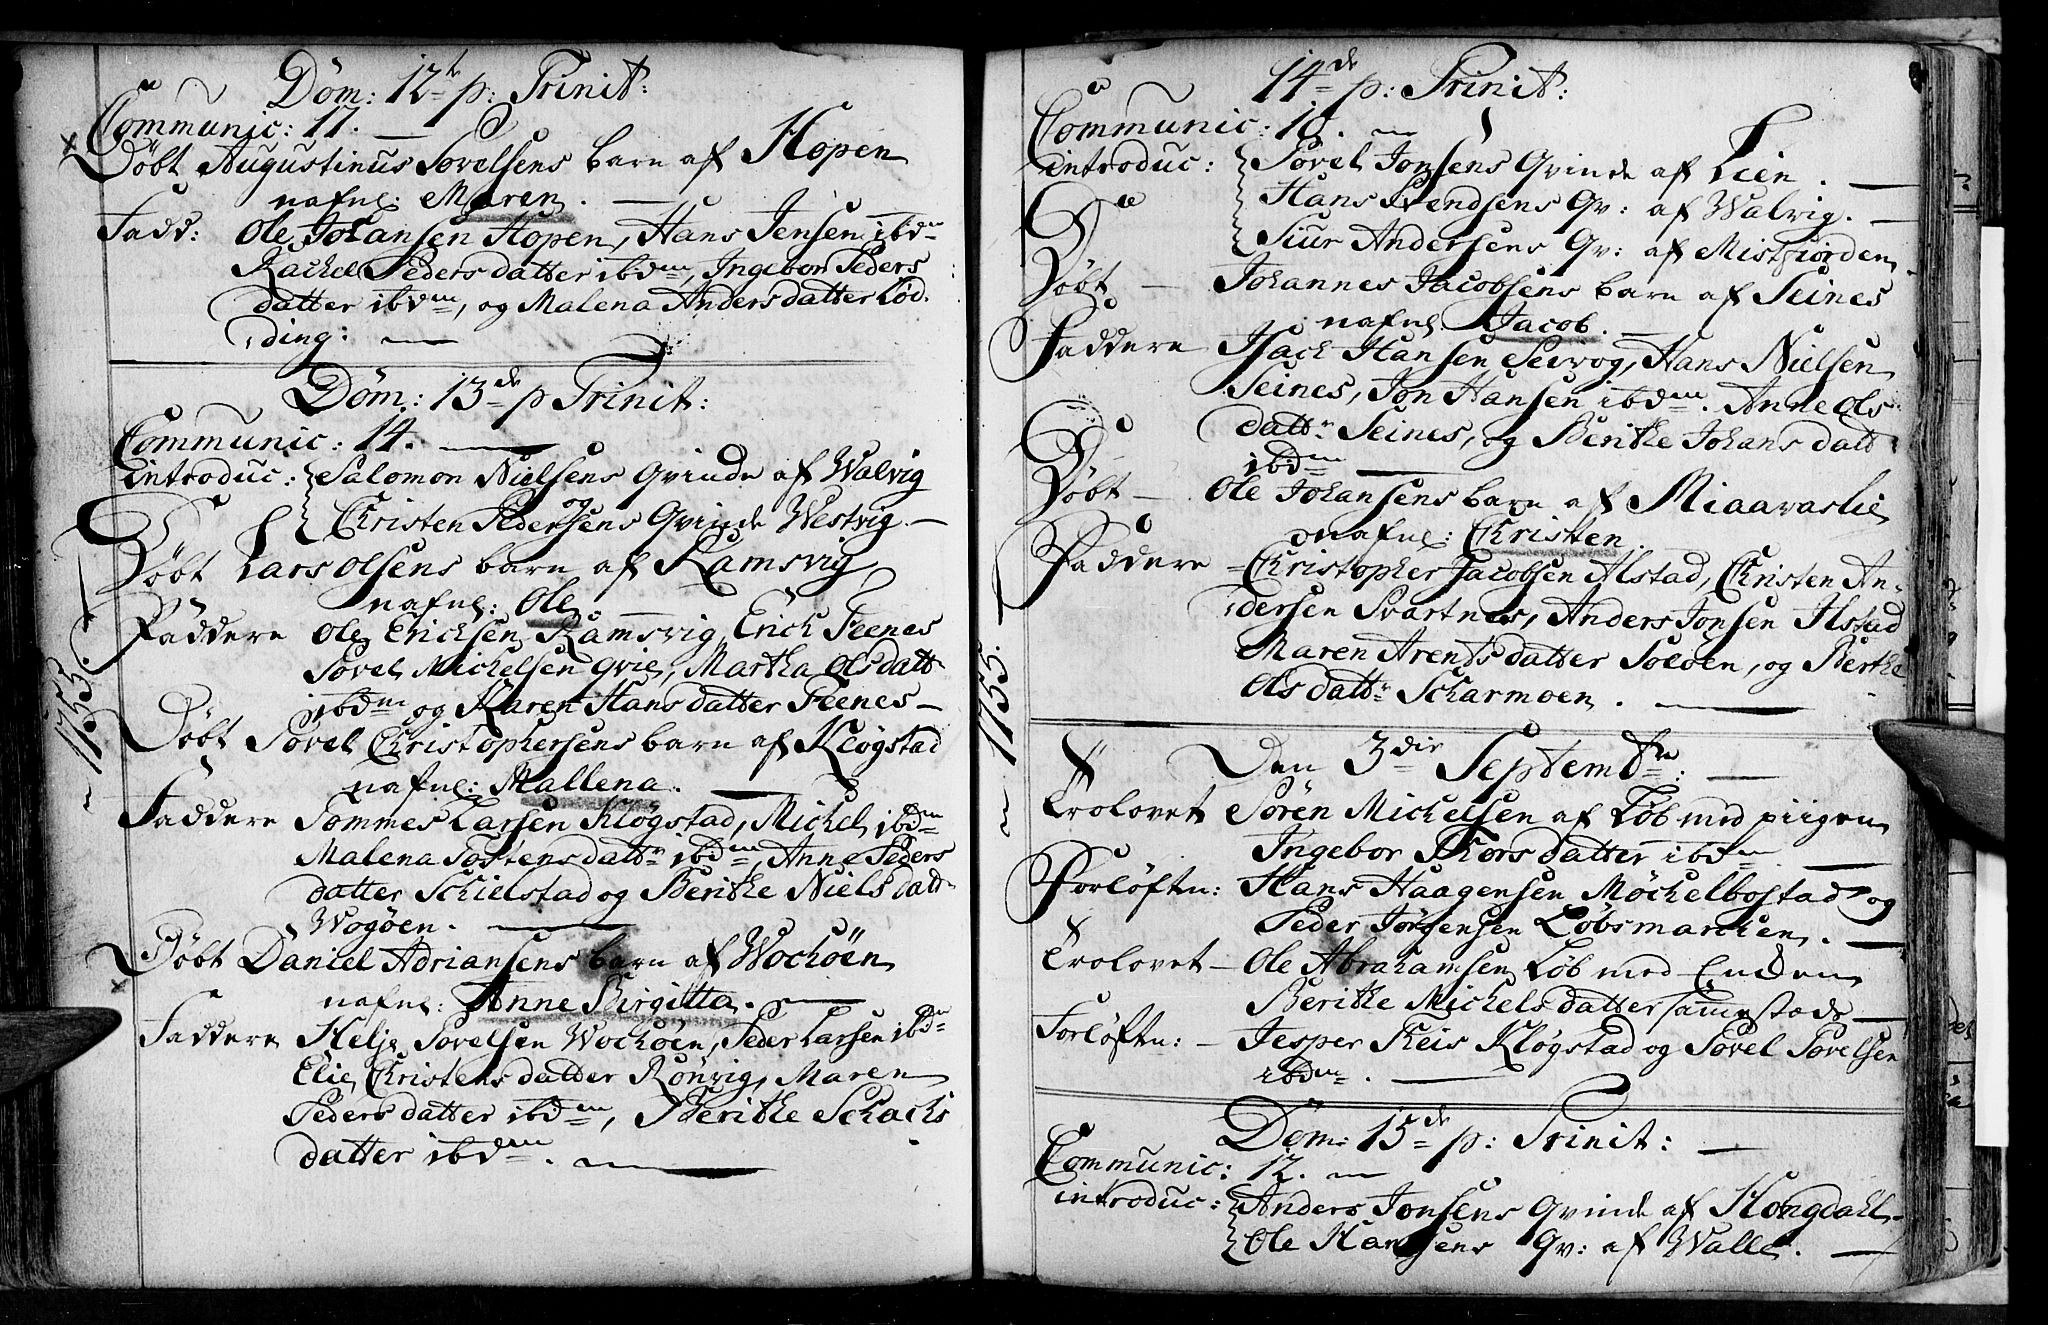 Dom: 12te p: Trinit:
Communic: 17.
Döbt Augustinus Sørelsens barn af Hopen
nafnl: Maren.
Fadd: Ole Johansen Hopen, Hans Jensen ibdm
Rachel Peders datter ibdm, Ingebor Peders
datter ibdm, og Malena Anders datter Lød
ding:
Dom: 13de p Trinit:
Communic: 14.
introduc: Salomon Nielsens Qvinde af Walvig
og
Christen Pedersens Qvinde Westvig.
Döbt Lars Olsens barn af Ramsvig
nafnl: Ole.
Faddere Ole Ericksen Ramsvig, Erick Feenes
Sørel Michelsen Qvie, Martha Olsdattr
ibdm og Karen Hans datter Feenes
1755.
Döbt Sørel Christophersens barn af Kløgstad
nafnl: Mallena.
Faddere Sommes Larsen Kløgstad, Michel ibdm
Malena Tostens dattr ibdm, Anne Peders
datter Schielstad og Berithe Niels dattr
Wogöen.
Döbt Daniel Adriansens barn af Wochöen
nafnl: Anne Birgitta.
Faddere Helje Sørelsen Wochöen, Peder Larsen ibdm
Elie Christens datter Rönvig, Maren
Peders datter ibdm, Berithe Schachs
datter ibdm.
14de p: Trinit:
Communic: 10.
introduc: Sørel Jonsens Qvinde af Lien.
Hans Svendsens Qv: af Walvig.
Siur Andersens Qv: af Mistfiorden
Döbt Johannes Jacobsens barn af Seines
nafnl Jacob.
Faddere Isach Hansen Seivog, Hans Nielsen
Seines, Jon Hansen ibdm. Anne Ols
dattr Seines, og Berithe Johans datt
ibdm
Döbt Ole Johansens barn af Miaavaslie
nafnl: Christen.
Faddere Christopher Jacobsen Alstad, Christen An
dersen Svartnes, Anders Jonsen Ilstad
Maren Arentsdatter Soløen, og Berthe
Ols dattr Scharmoen.
1755.
Den 3die Septembr:
Trolovet Sören Michelsen af Løb med piigen
Ingebor Thors datter ibdm
Forløftn: Hans Haagensen Möchelbostad og
Peder Jörgensen Løbsmarchen.
Trolovet Ole Abrahamsen Løb med Enchen
Berithe Michels datter sammestads
Forløftn: Jesper Heis Kløgstad og Sørel Sørelsen
ibdm.
Dom: 15de p: Trinit:
Communic: 12.
introduc: Anders Jonsens Qvinde af Hongdahl
Ole Hansens Qv: af Walle.